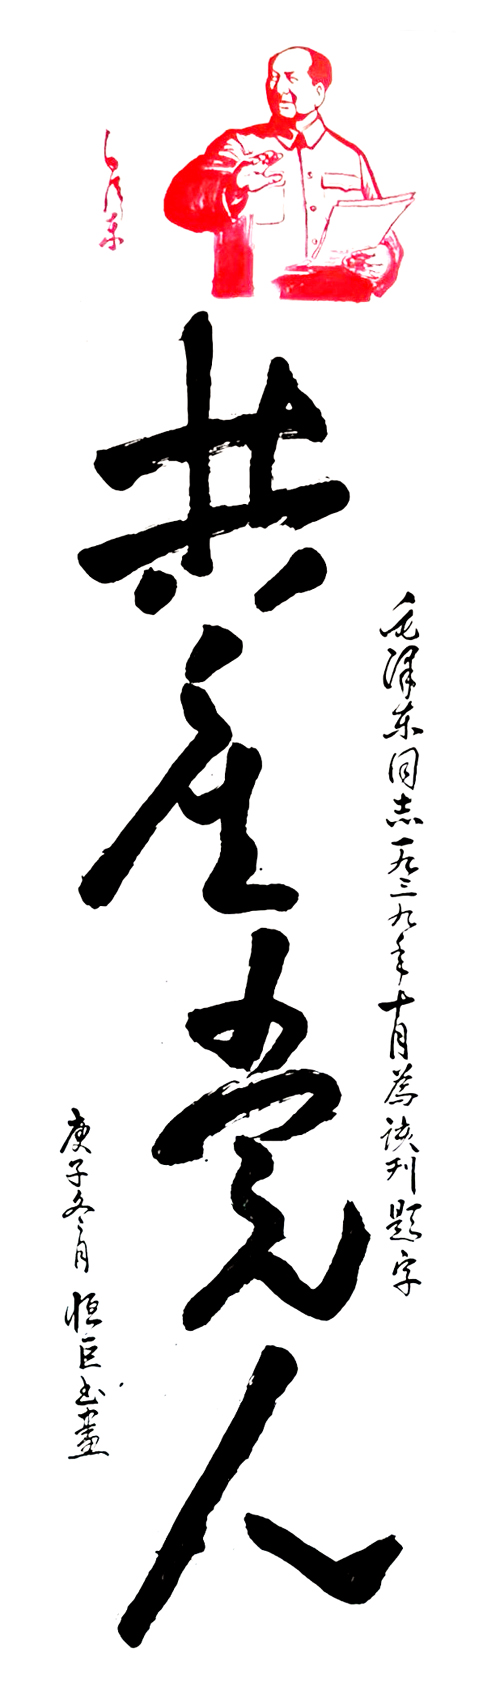 毛泽东
共产党人
毛泽东同志一九三九年十月為该刊题字
庚子冬月 恒巨书畫